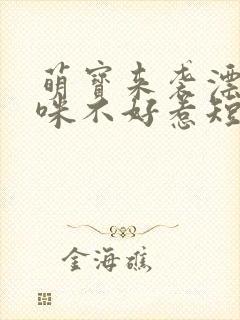 萌宝来袭漂
咪不好惹短
金海礁